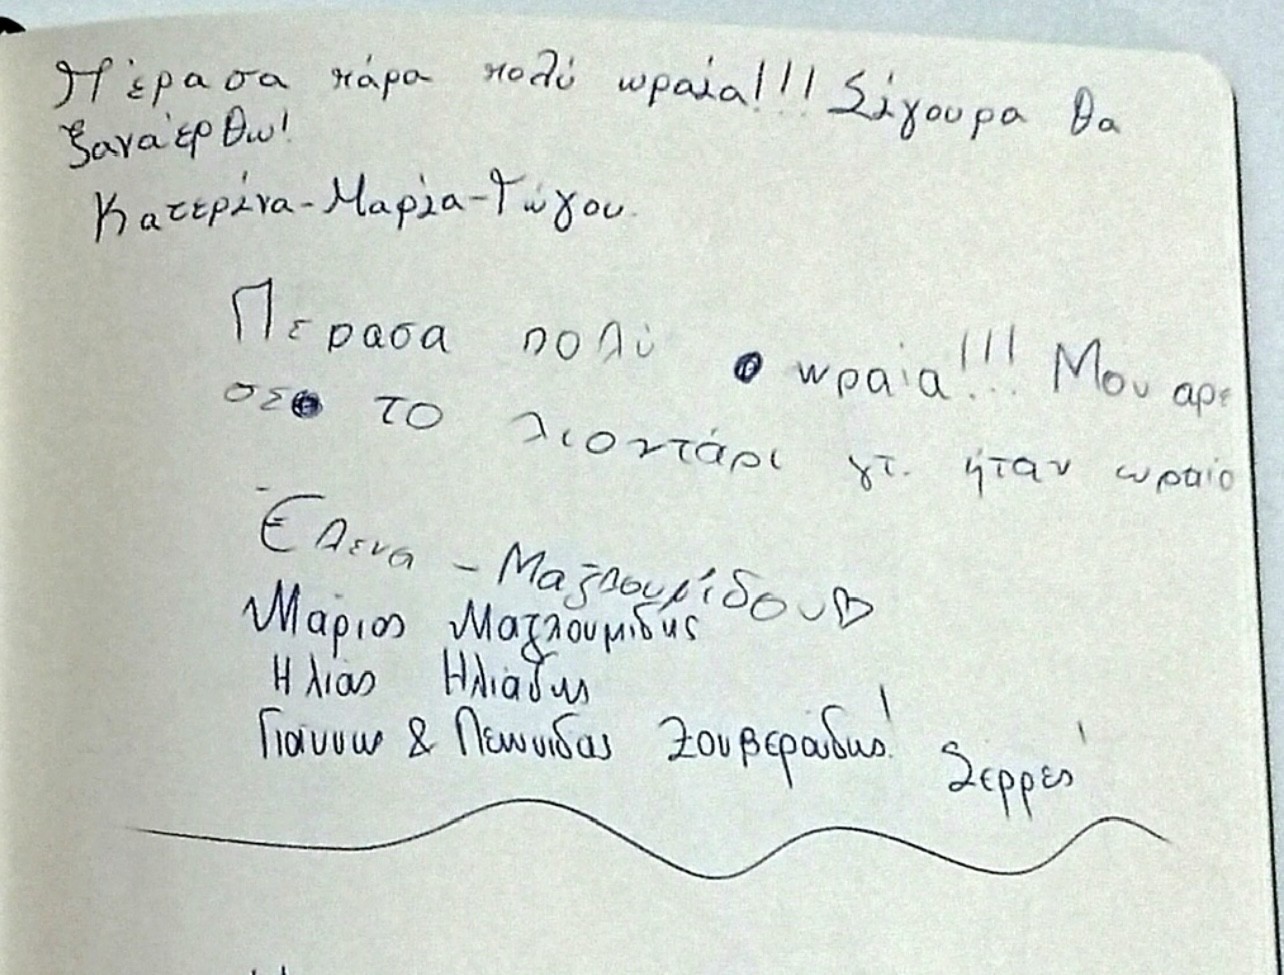 Πέρασα πάρα πολύ ωραία!!! Σίγουρα θα
ξαναέρθω!
Κατερίνα-Μαρία-Γώγου
Περασα πολύ ωραία!!! Μου αρε
σε το λιοντάρι γτ. ήταν ωραίο
Έλενα - Μαζλουμίδου♡
Μάριος Μαζλουμιδης
Ηλίας Ηλιάδης
Γιάννης & Λεωνιδας Ζουβεράδης! Σερρες!